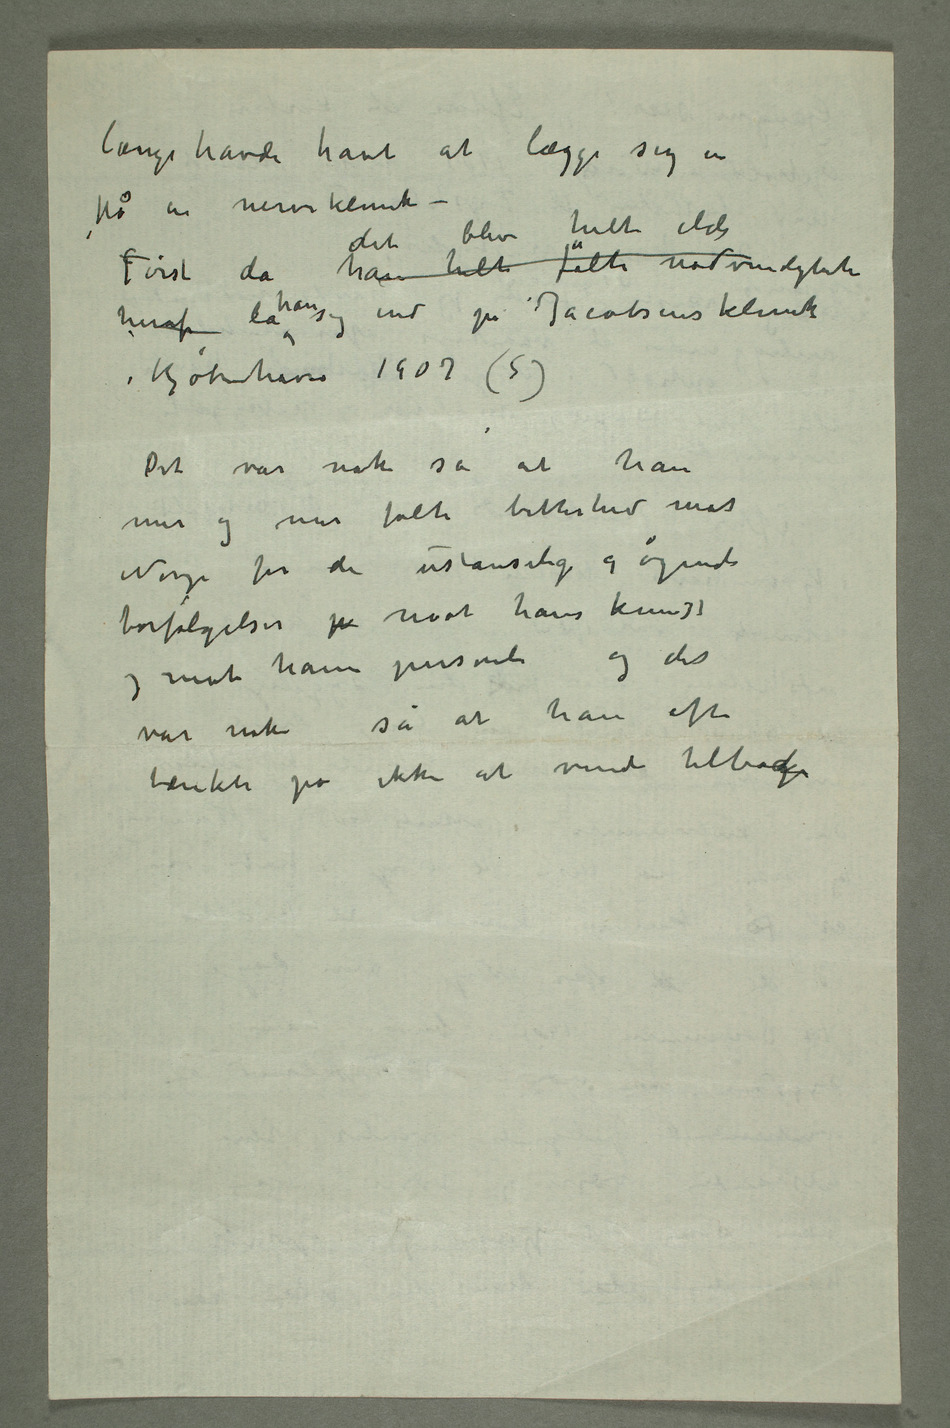 længe havde havt at lægge sig in
på en nerveklinik –
det blev helt
Først da han helt følte nødvendigheten
heraf la han sig ind på Jacobsens klinik
i Kjøbenhavn 1907 (S)
Det var nok så at han
mer og mer følte bitterhed mot
Norge for de ustanselige og øgende
forfølgelser på mot hans kunst
og mot ham personlig og det
var nok så at han ofte
tænkte på ikke at vende tilbage